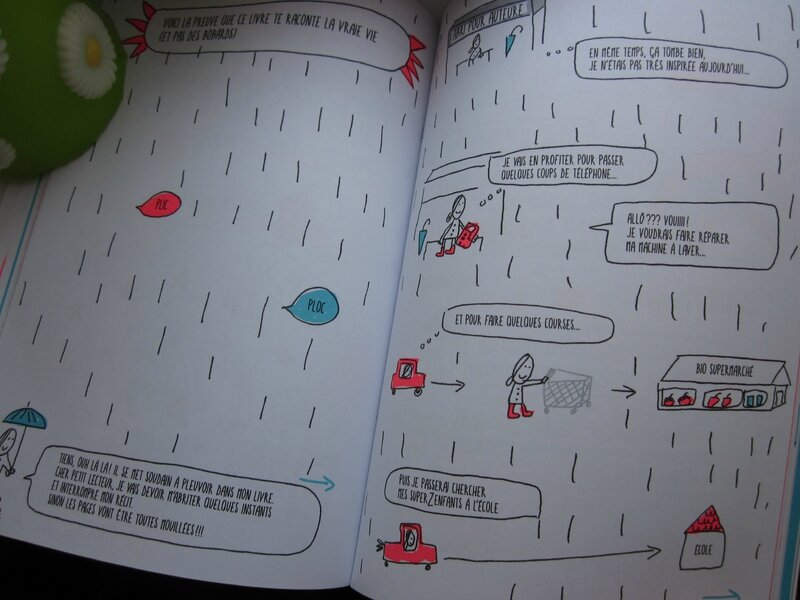 VOICI LA PREUVE QUE CE LIVRE TE RACONTE LA VRAIE VIE
(ET PAS DES BOBARDS)
PLIC
PLOC
TIENS, OUH LÀ LÀ! IL SE MET SOUDAIN À PLEUVOIR DANS MON LIVRE.
CHER PETIT LECTEUR, JE VAIS DEVOIR M'ABRITER QUELQUES INSTANTS
ET INTERROMPRE MON RÉCIT.
SINON LES PAGES VONT ÊTRE TOUTES MOUILLÉES!!!
ABRI POUR AUTEURE
EN MÊME TEMPS, ÇA TOMBE BIEN,
JE N'ÉTAIS PAS TRÈS INSPIRÉE AUJOURD'HUI...
JE VAIS EN PROFITER POUR PASSER
QUELQUES COUPS DE TÉLÉPHONE...
ALLÔ??? VOUIIII!
JE VOUDRAIS FAIRE RÉPARER
MA MACHINE À LAVER...
ET POUR FAIRE QUELQUES COURSES...
BIO SUPERMARCHÉ
PUIS JE PASSERAI CHERCHER
MES SUPERZENFANTS À L'ÉCOLE
ÉCOLE